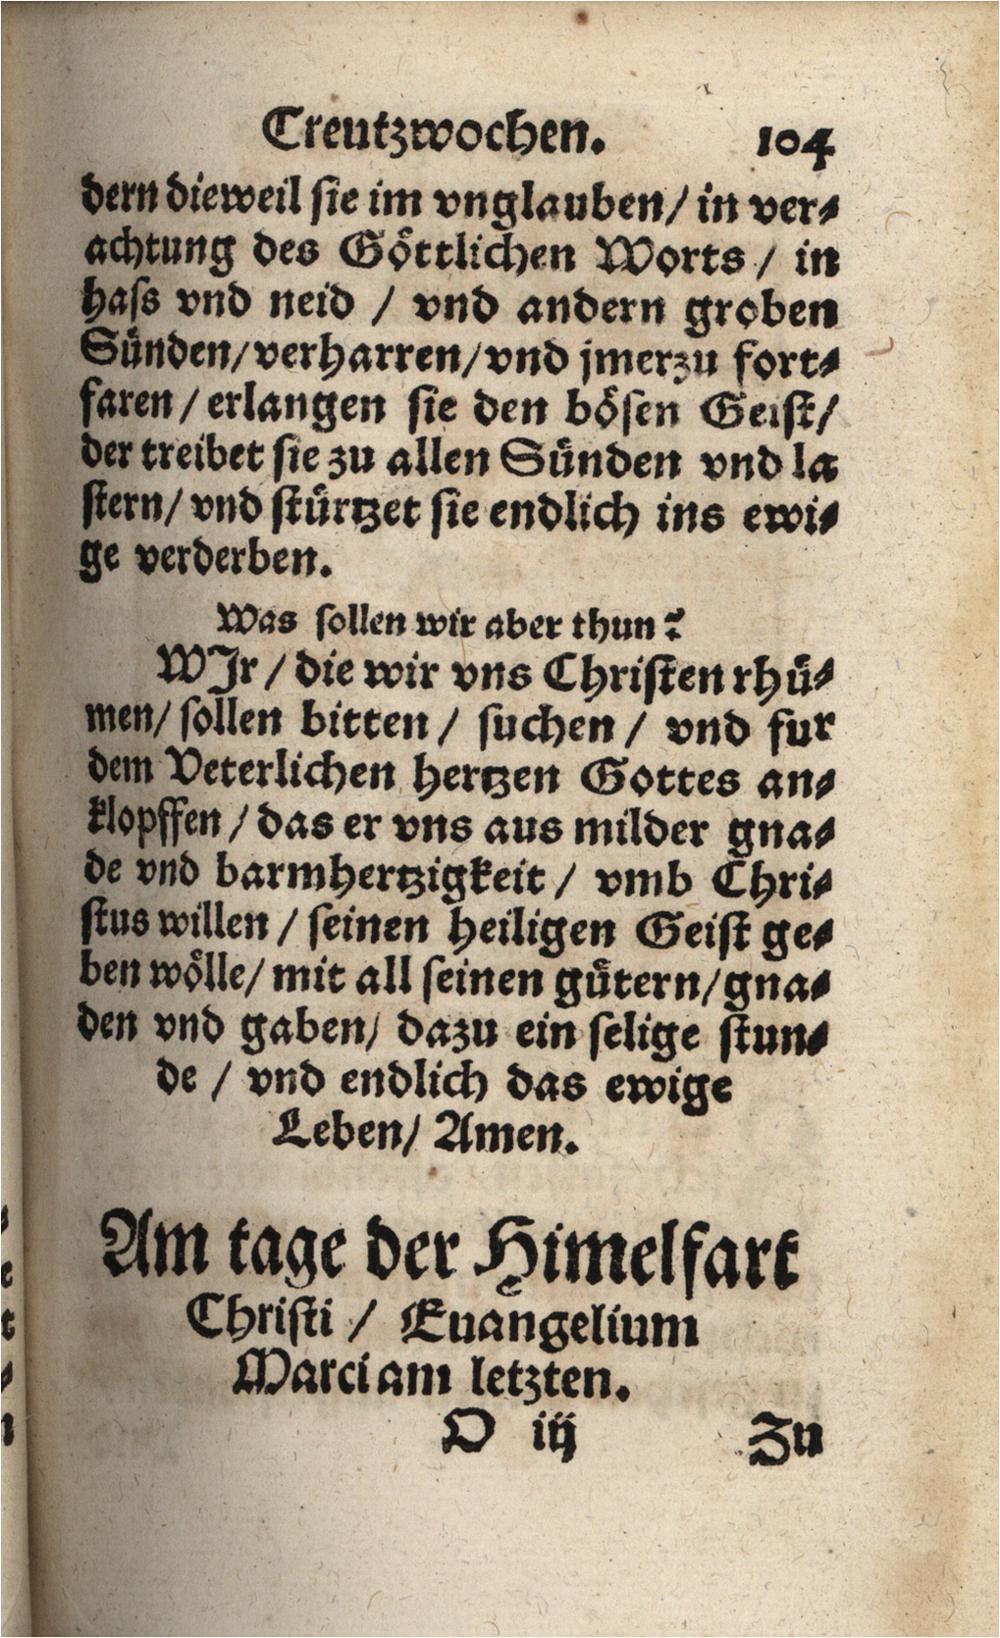 Creutzwochen. 104
dern dieweil sie im vnglauben/ in ver⸗
achtung des Göttlichen Worts / in
hass vnd neid / vnd andern groben
Sünden/ verharren/ vnd jmerzu fort⸗
faren / erlangen sie den bösen Geist/
der treibet sie zu allen Sünden vnd la
stern/ vnd stürtzet sie endlich ins ewi⸗
ge verderben.
Was sollen wir aber thun?
WJr / die wir vns Christen rhü⸗
men/ sollen bitten / suchen / vnd fur
dem Veterlichen hertzen Gottes an⸗
klopffen / das er vns aus milder gna⸗
de vnd barmhertzigkeit / vmb Chri⸗
stus willen / seinen heiligen Geist ge⸗
ben wölle/ mit all seinen gütern/ gna⸗
den vnd gaben/ dazu ein selige stun⸗
de / vnd endlich das ewige
Leben/ Amen.
Am tage der Himelfart
Christi / Euangelium
Marci am letzten.
O iij Zu